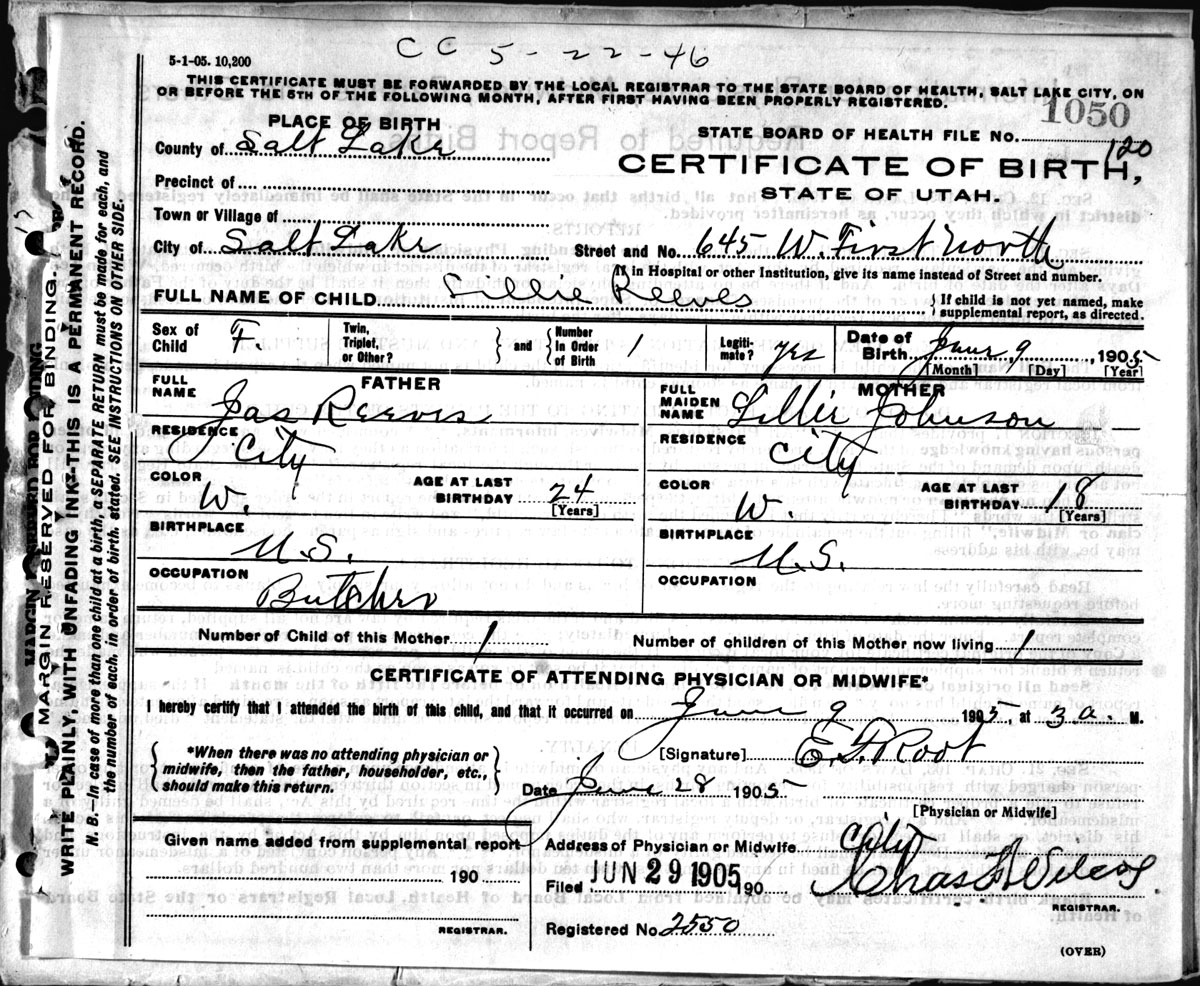 CC 5-22-46
5-1-05. 10,200
THIS CERTIFICATE MUST BE FORWARDED BY THE LOCAL REGISTRAR TO THE STATE BOARD OF HEALTH, SALT LAKE CITY, ON
OR BEFORE THE 5TH OF THE FOLLOWING MONTH, AFTER FIRST HAVING BEEN PROPERLY REGISTERED.
1050
PLACE OF BIRTH
STATE BOARD OF HEALTH FILE NO. 120
County of Salt Lake
CERTIFICATE OF BIRTH,
STATE OF UTAH.
Precinct of
Town or Village of
City of Salt Lake
Street and No. 645 W. First North
If in Hospital or other Institution, give its name instead of Street and number.
FULL NAME OF CHILD. Lillie Reeves
{ If child is not yet named, make
supplemental report, as directed.
Sex of Child F
Twin, Triplet, or Other? } and { Number In Order of Birth 1
Legiti- mate? yes
Date of Birth June 9 1905
[Month] [Day] [Year]
FATHER
FULL NAME Jas Reeves
RESIDENCE City
COLOR W.
AGE AT LAST BIRTHDAY 24
[Years]
BIRTHPLACE U.S.
OCCUPATION Butcher
MOTHER
FULL MAIDEN NAME Lillie Johnson
RESIDENCE City
COLOR W.
AGE AT LAST BIRTHDAY 18
[Years]
BIRTHPLACE U.S.
OCCUPATION
Number of Child of this Mother 1
Number of children of this Mother now living 1
CERTIFICATE OF ATTENDING PHYSICIAN OR MIDWIFE*
I hereby certify that I attended the birth of this child, and that it occurred on June 9 1905, at 3 a. M.
{ *When there was no attending physician or
midwife, then the father, householder, etc.,
should make this return. }
[Signature] E. F. Root
Date June 28 1905
[Physician or Midwife]
Given name added from supplemental report
190
REGISTRAR.
Address of Physician or Midwife. City
Filed JUN 29 1905 190
REGISTRAR.
Registered No. 2550
(OVER)
MARGIN RESERVED FOR BINDING
WRITE PLAINLY WITH UNFADING INK—THIS IS A PERMANENT RECORD.
N. B.—In case of more than one child at a birth, a SEPARATE RETURN must be made for each, and
the number of each, in order of birth, stated. SEE INSTRUCTIONS ON OTHER SIDE.